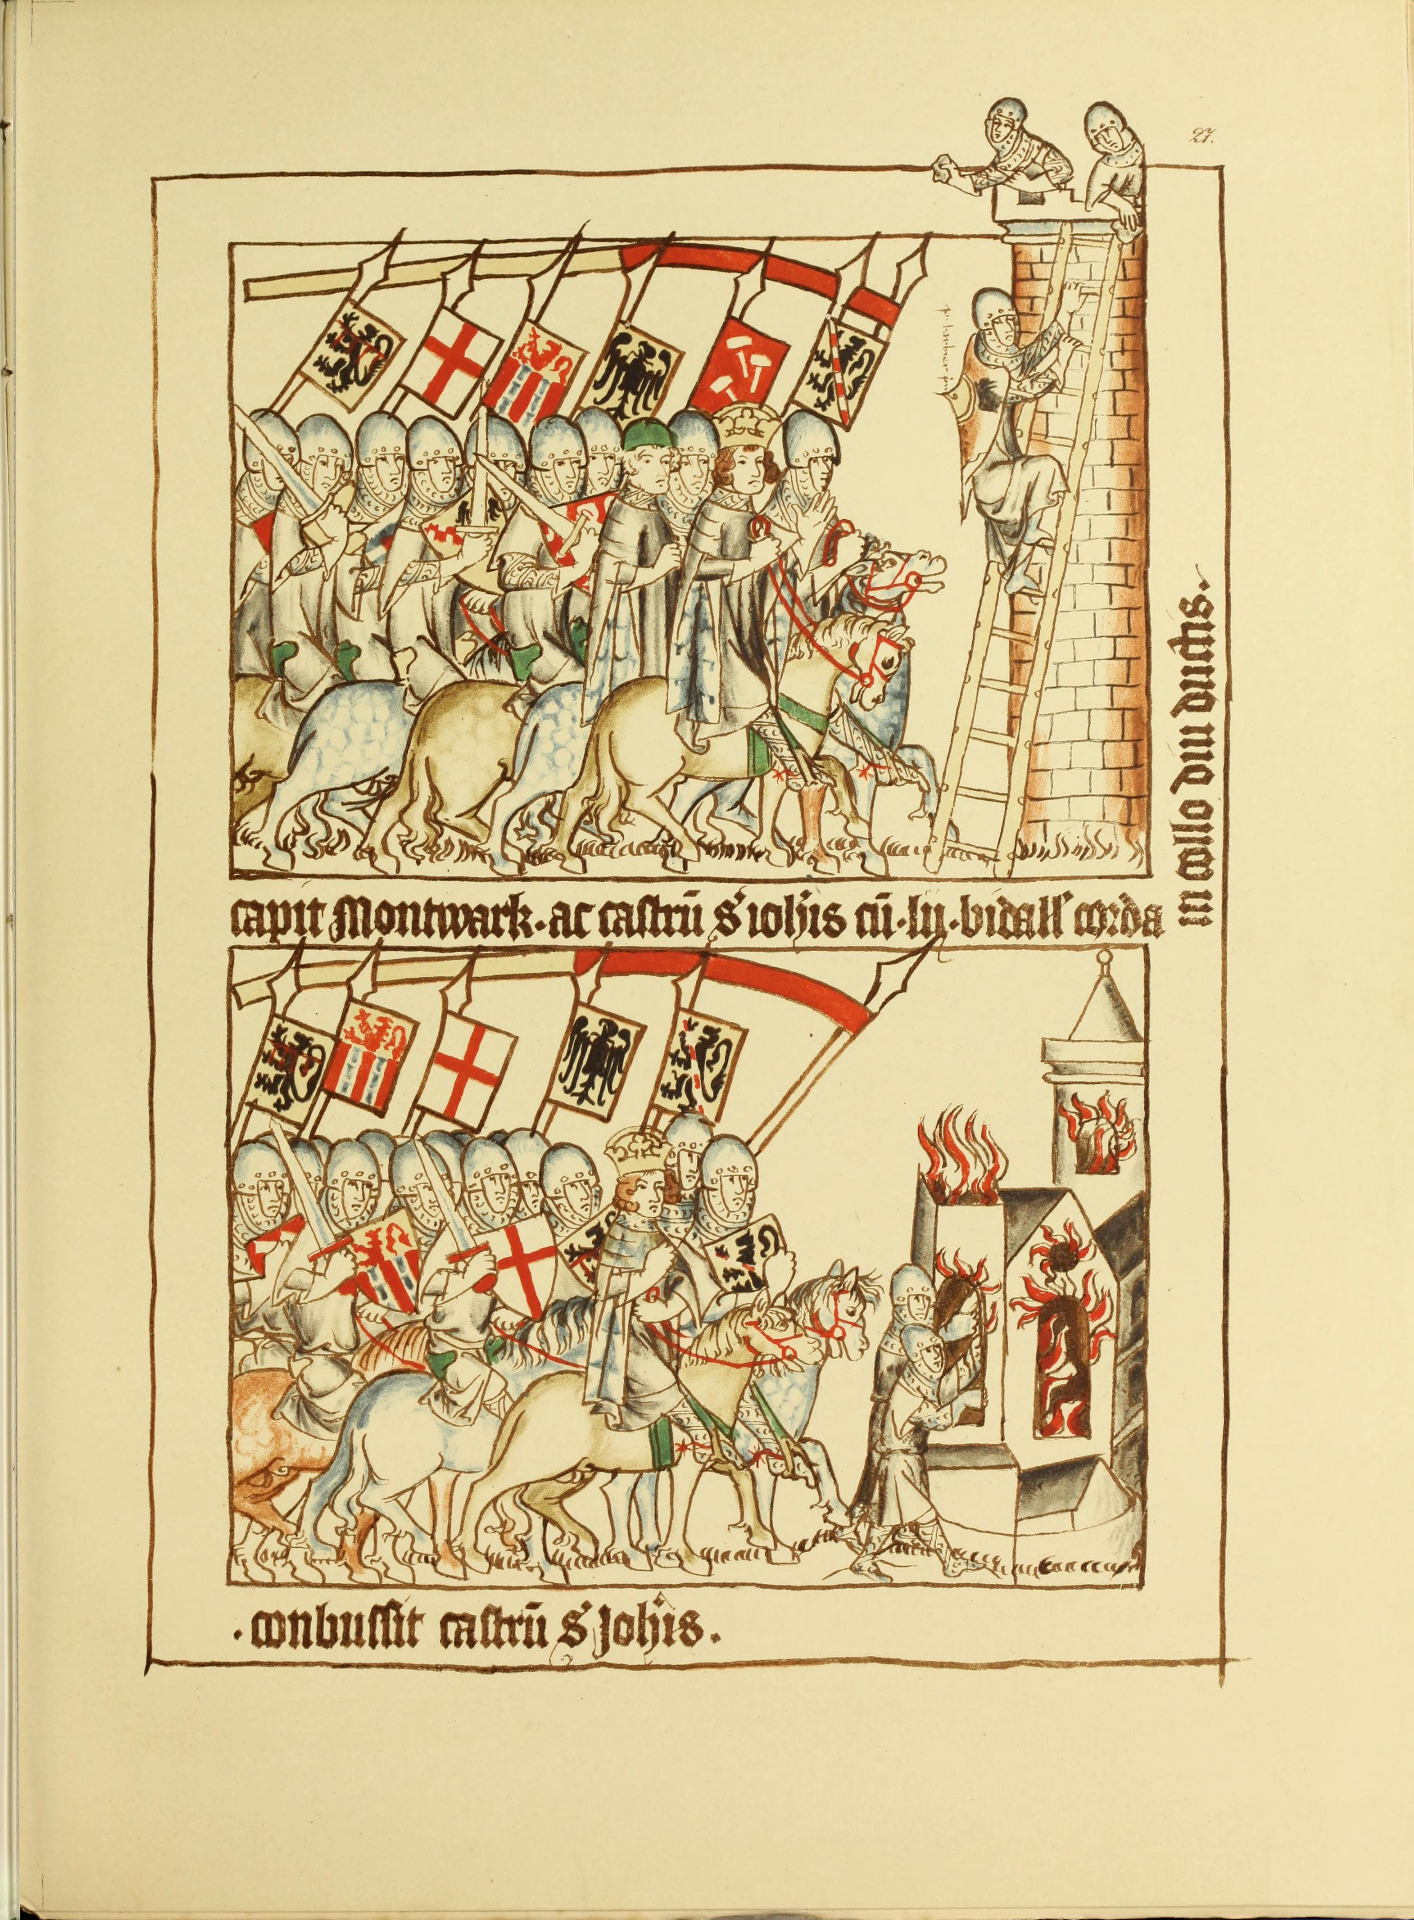 27.
capit Montwark · ac castrū s' ioh̄is cū · lij · vidall' corda
in collo diu ductis.
· conbussit castrū s' Joh̄is.